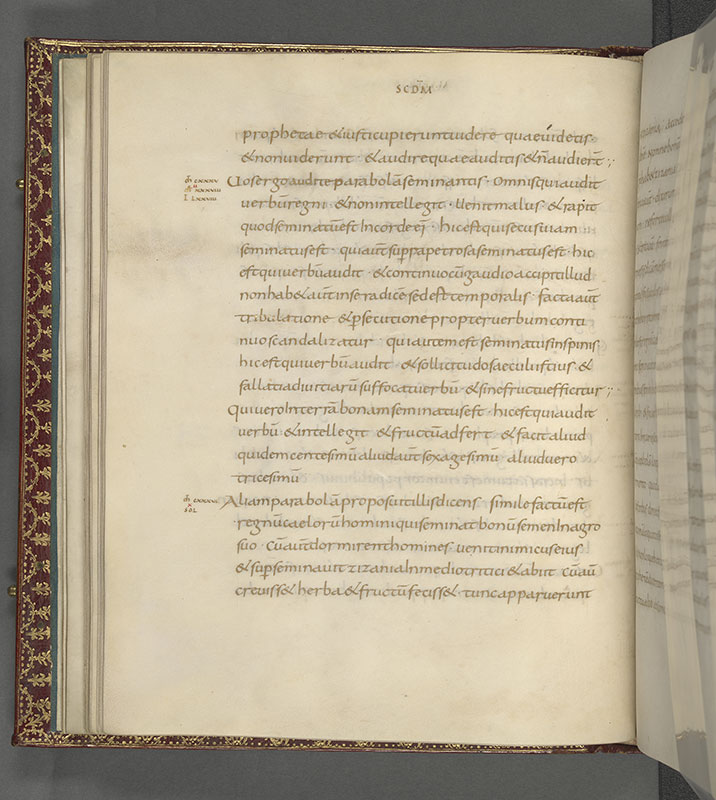 SCDM̄
prophetae & iusti cupierunt uidere quae uidetis
& non uiderunt · & audire quae auditis & n̄ audiert̄ ;
m̄ CXXXV
Uos ergo audite parabolā seminantis · Omnis qui audit
m̄r XXXVIII
L LXXVIII
uerbū regni & non intellegit · Uenit malus & rapit
quod seminatū est In corde ei' · hic est qui secus uiam
seminatus est · qui aut̄ sup̄ra petrosa seminatus est · hic
est qui uerbū audit & continuo cū gaudio accipit illud
non hab& aut̄ in se radicē sed est temporalis · facta aut̄
tribulatione & p̄secutione propter uerbum conti
nuo scandalizatur · qui autem est seminatus in spinis
hic est qui uerbū audit & sollicitudo saeculi istius &
fallatia diuitiarū suffocat uerbū & sine fructu efficitur ;
Qui uero In terrā bonam seminatus est · hic est qui audit
uerbū & intellegit & fructū adfert & facit aliud
quidem centesimū aliud aut̄ sexagesimū aliud uero
tricesimū
m̄ CXXXVI
Aliam parabolā proposuit illis dicens simile factū est
X
SOL
regnū caelorū homini qui seminat bonū semen In agro
suo · cū aut̄ dormirent homines uenit inimicus eius
& sup̄seminauit zizania In medio tritici & abiit cū aū
creuiss& herba & fructū feciss& · tunc apparuerunt